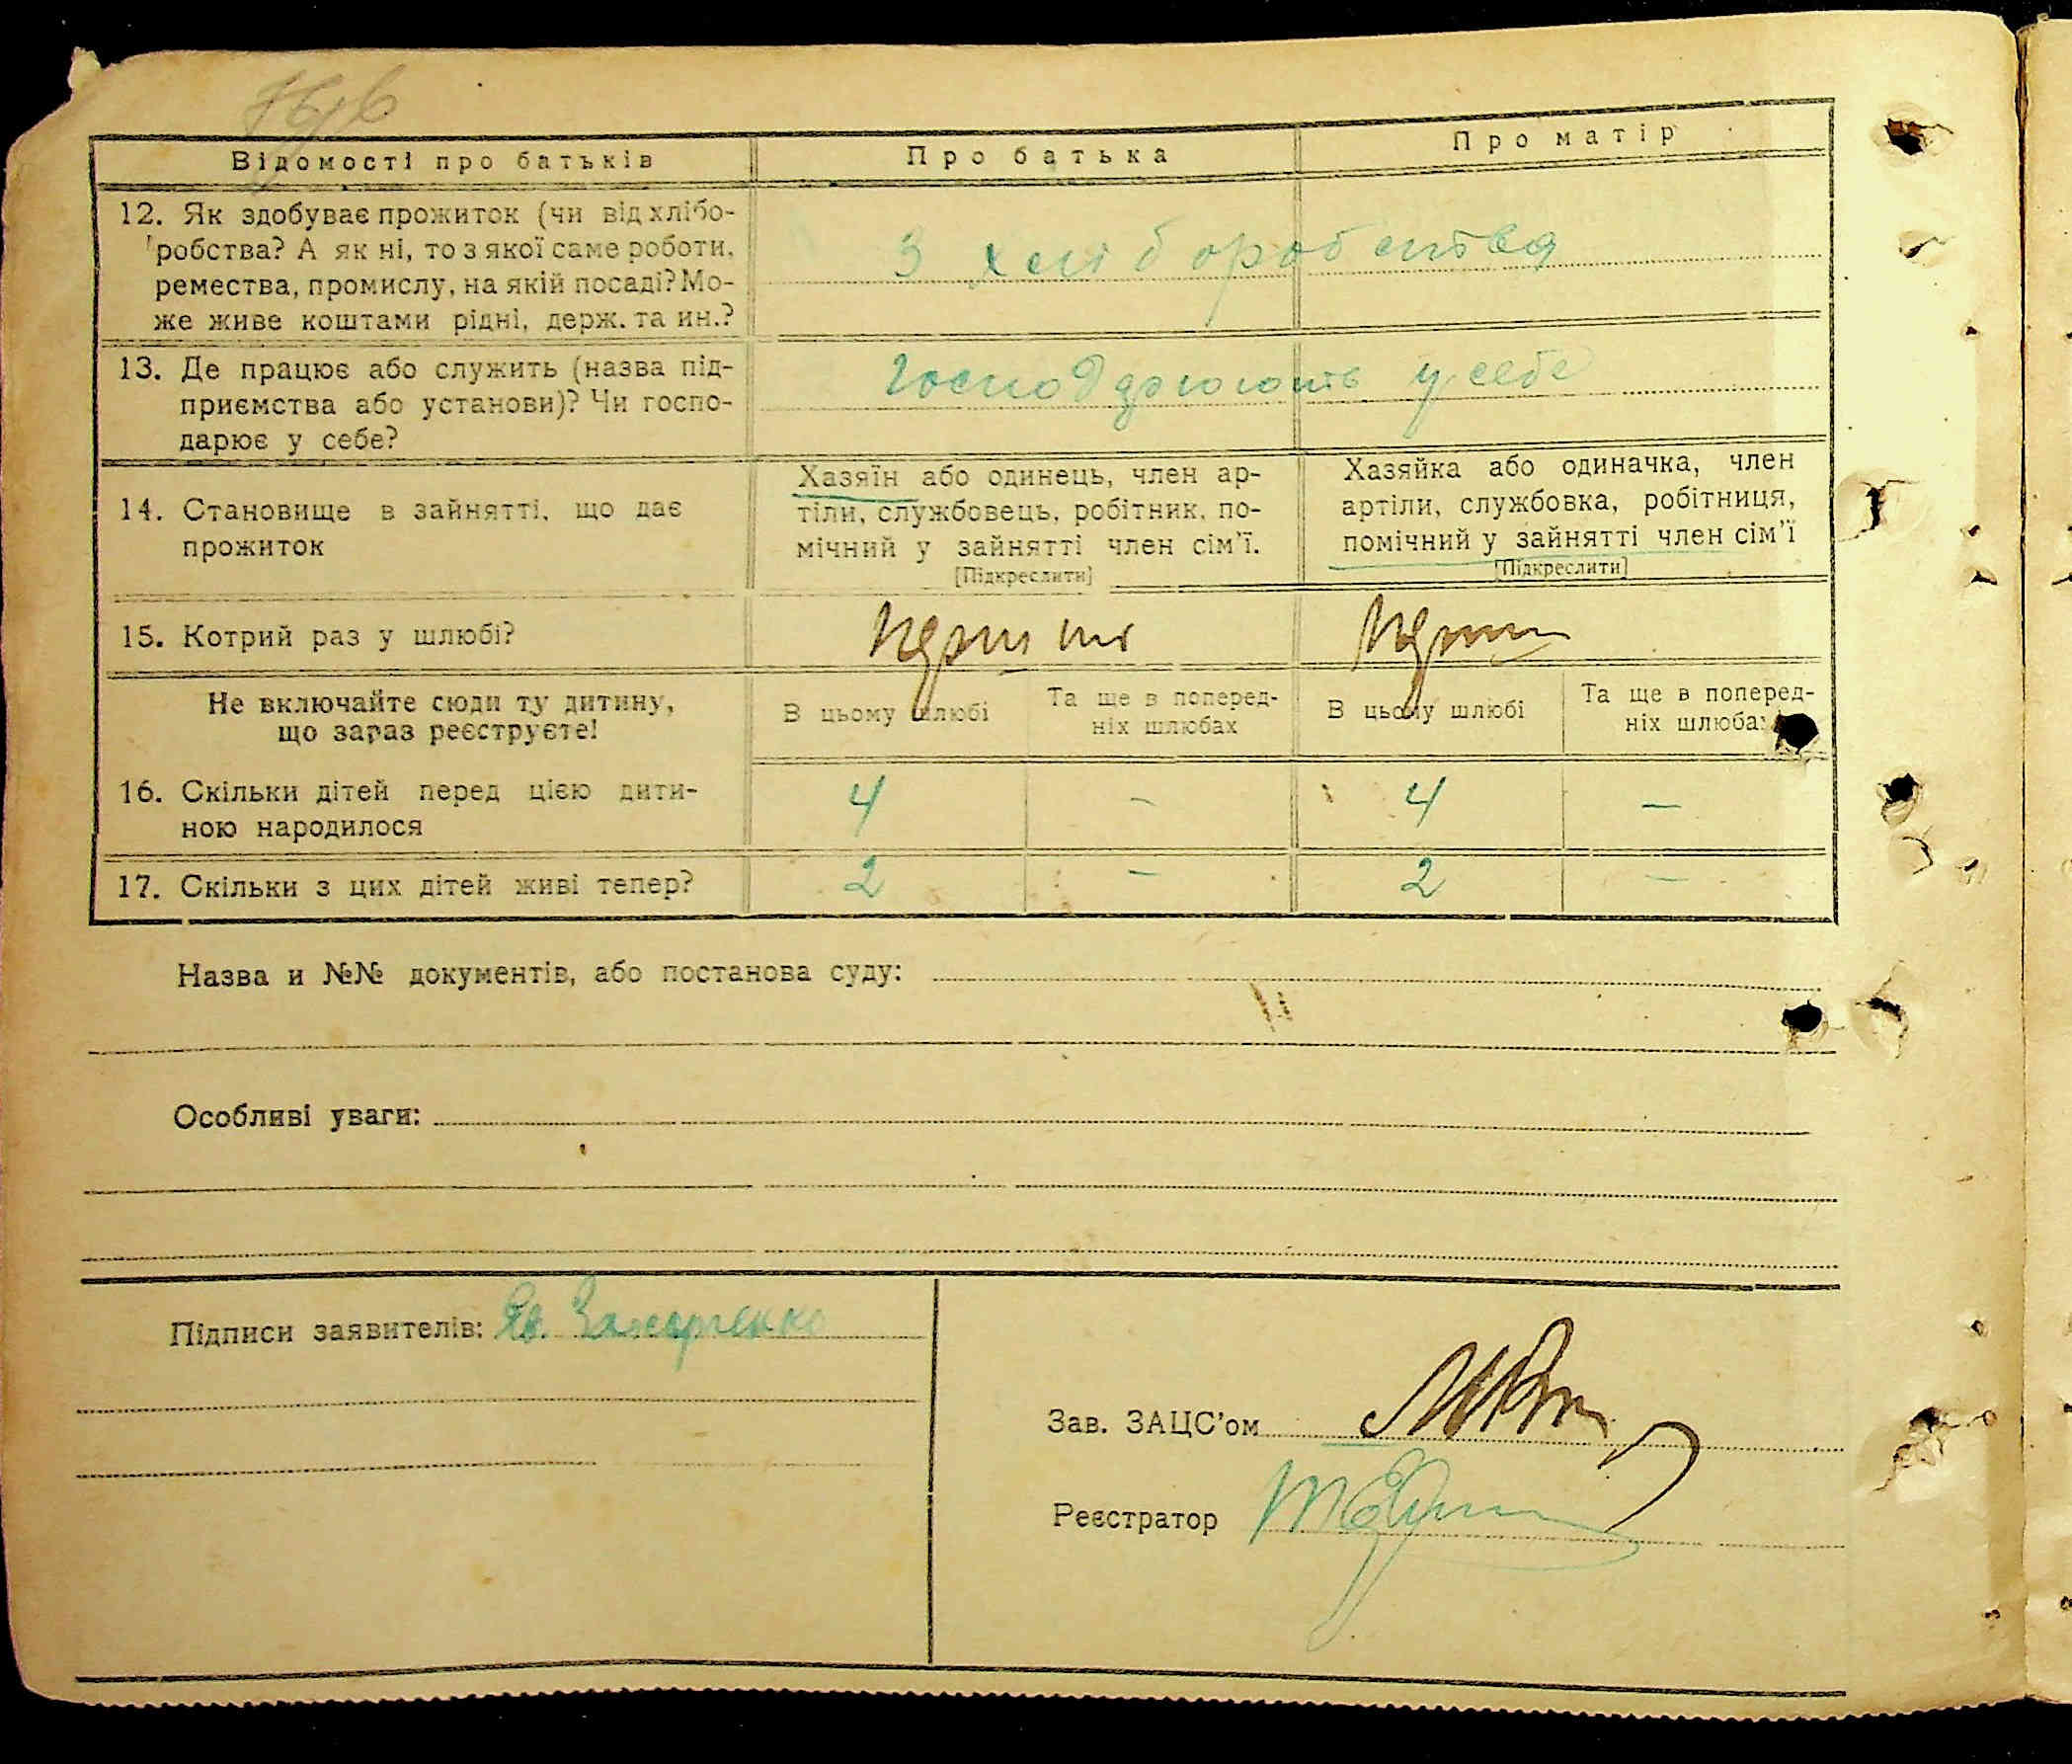 Відомості про батьків
Про батька
Про матір
12. Як здобуває прожиток (чи від хлібо-
робства? А як ні, то з якої саме роботи,
ремества, промислу, на якій посаді? Мо-
же живе коштами рідні, держ. та ин.?
З хліборобства
13. Де працює або служить (назва під-
приємства або установи)? Чи госпо-
дарює у себе?
Господарюють у себе
14. Становище в зайнятті, що дає
прожиток
Хазяїн або одинець, член ар-
тіли, службовець, робітник, по-
мічний у зайнятті член сім'ї.
[Підкреслити]
Хазяйка або одиначка, член
артіли, службовка, робітниця,
помічний у зайнятті член сім'ї
[Підкреслити]
15. Котрий раз у шлюбі?
Не включайте сюди ту дитину,
що зараз реєструєте!
В цьому шлюбі
Та ще в поперед-
ніх шлюбах
В цьому шлюбі
Та ще в поперед-
ніх шлюбах
16. Скільки дітей перед цією дити-
ною народилося
4 – 4 –
17. Скільки з цих дітей живі тепер?
2 – 2 –
Назва и №№ документів, або постанова суду:
Особливі уваги:
Підписи заявителів: Захарченко
Зав. ЗАЦС'ом
Реєстратор